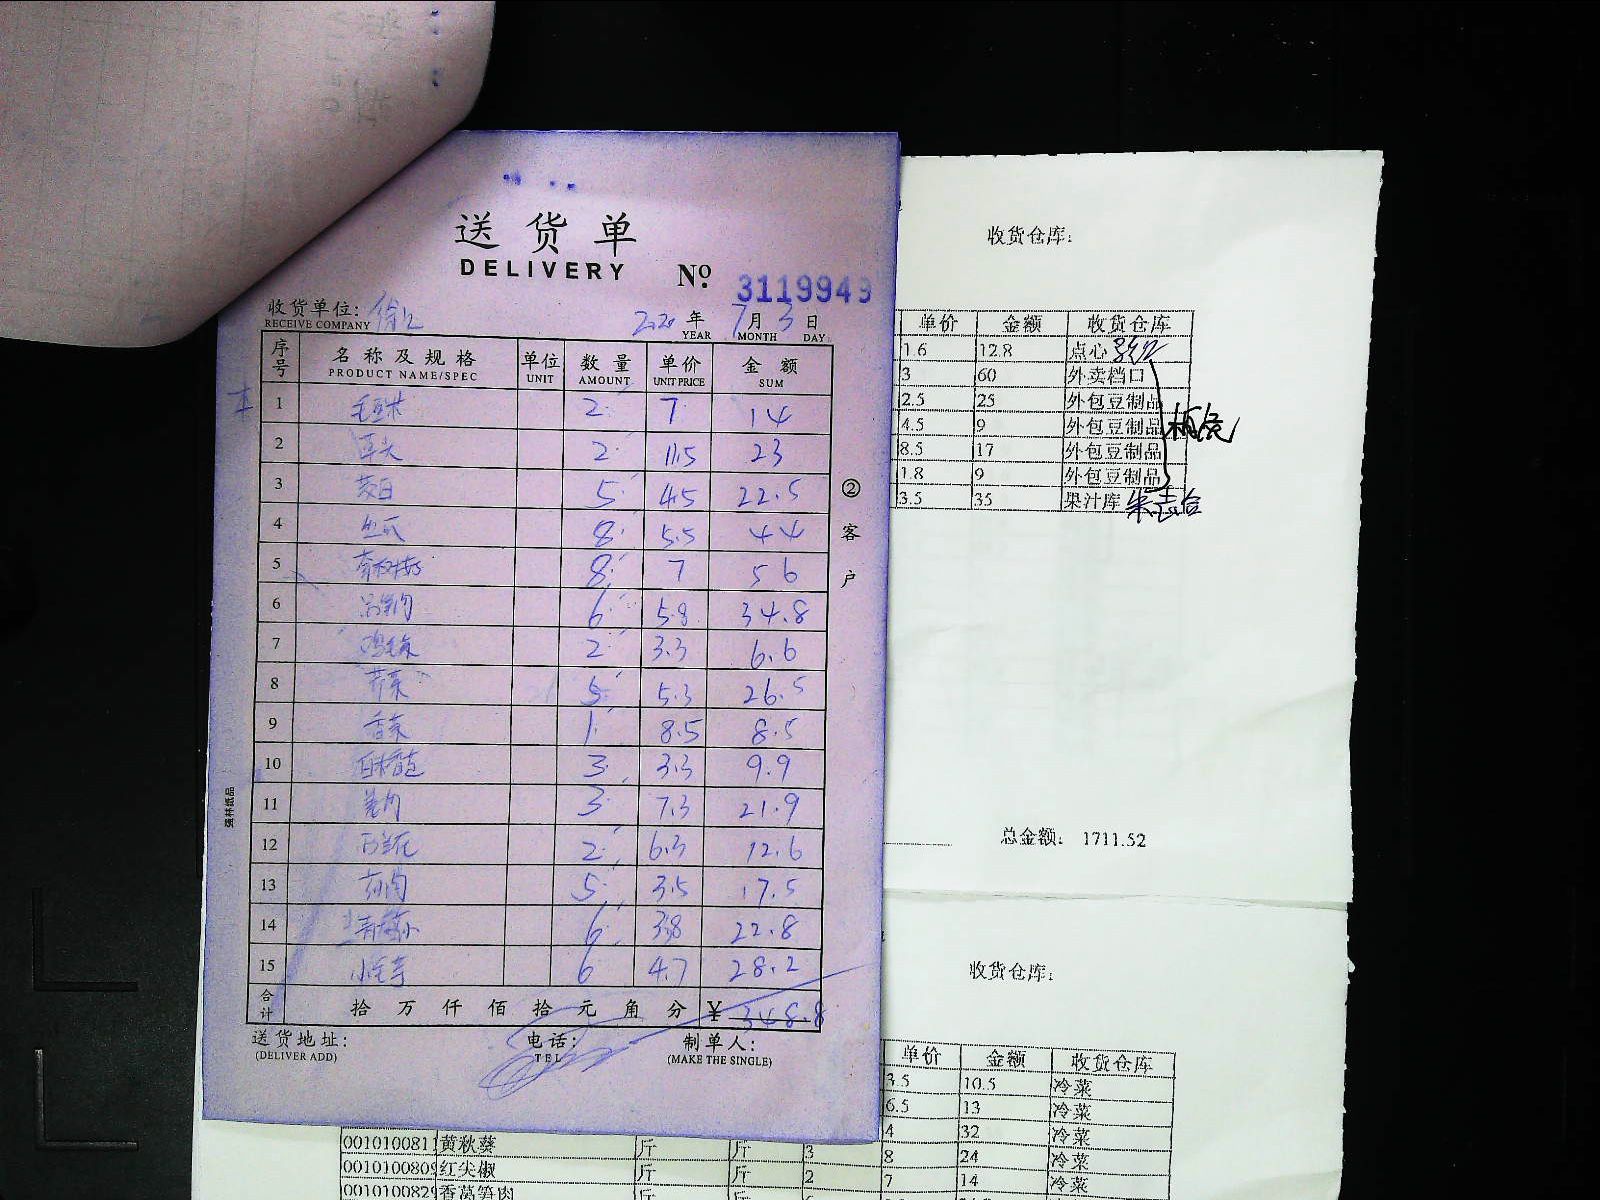 送货单
DELIVERY № 3119949
收货单位: 徐汇
RECEIVE COMPANY
2020 年 7 月 3 日
YEAR MONTH DAY
序号 名称及规格 单位 数量 单价 金额
PRODUCT NAME/SPEC UNIT AMOUNT UNIT PRICE SUM
1 毛豆米 2 7 14
2 2 11.5 23
3 茭白 5 4.5 22.5
4 丝瓜 8 5.5 44
5 8 7 56
6 6 5.8 34.8
7 鸡毛菜 2 3.3 6.6
8 芹菜 5 5.3 26.5
9 香菜 1 8.5 8.5
10 3 3.3 9.9
11 3 7.3 21.9
12 西兰花 2 6.3 12.6
13 5 3.5 17.5
14 6 3.8 22.8
15 6 4.7 28.2
合计 拾 万 仟 佰 拾 元 角 分 ¥ 348.8
送货地址: 电话: 制单人:
(DELIVER ADD) TEL (MAKE THE SINGLE)
② 客户
强林纸品
收货仓库:
单价 金额 收货仓库
1.6 12.8 点心
3 60 外卖档口
2.5 25 外包豆制品
4.5 9 外包豆制品
8.5 17 外包豆制品
1.8 9 外包豆制品
3.5 35 果汁库
总金额: 1711.52
收货仓库:
单价 金额 收货仓库
3.5 10.5 冷菜
6.5 13 冷菜
4 32 冷菜
0010100811 黄秋葵 斤 斤 3 8 24 冷菜
0010100809 红尖椒 斤 斤 2 7 14 冷菜
0010100829 香莴笋肉 斤 斤